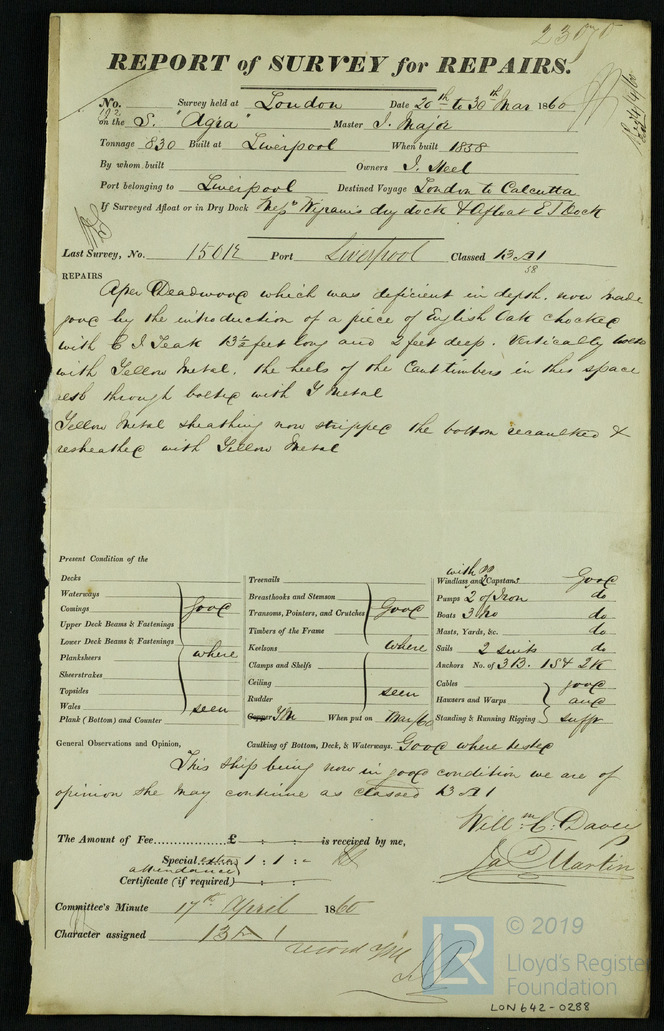 REPORT of SURVEY for REPAIRS.
No. Survey held at London Date 20th to 30th Mar 1860
on the S. "Agra" Master J. Major
Tonnage 830 Built at Liverpool When built 1858
By whom built Owners J. Steel
Port belonging to Liverpool Destined Voyage London to Calcutta
If Surveyed Afloat or in Dry Dock Messrs Wigram's dry dock & Afloat E I Dock
Last Survey, No. Port Liverpool Classed 13 A 1
58
REPAIRS
After Deadwood which was deficient in depth, now made
good by the introduction of a piece of English Oak chocked
with E I Teak 13½ feet long and 2 feet deep. Vertically bolted
with Yellow Metal, the heels of the Cant timbers in this space
also through bolted with Y Metal
Yellow Metal sheathing now stripped the bottom recaulked &
resheathed with Yellow Metal
Present Condition of the
Decks
Waterways
Comings good
Upper Deck Beams & Fastenings
Lower Deck Beams & Fastenings
Planksheers where
Sheerstrakes
Topsides
Wales seen
Plank (Bottom) and Counter
Treenails
Breasthooks and Stemson
Transoms, Pointers, and Crutches Good
Timbers of the Frame
Keelsons where
Clamps and Shelfs
Ceiling
Rudder seen
Copper YM When put on Mar/60
Windlass and Capstans Good
Pumps 2 of Iron do
Boats 3 No do
Masts, Yards, &c. do
Sails 2 suits do
Anchors No. of 3 B. 1 S & 2 K
Cables good
Hawsers and Warps and
Standing & Running Rigging sufft
General Observations and Opinion, Caulking of Bottom, Deck, & Waterways. Good where tested
This ship being now in good condition we are of
opinion she may continue as classed 13 A 1
Willm C. Davey
Jas Martin
The Amount of Fee £ : : is received by me,
Special extra 1 : 1 : -
attendance
Certificate (if required) : :
Committee's Minute 17th April 1860
Character assigned 13 A 1
record YM
© 2019
LR
Lloyd's Register
Foundation
LON642-0288